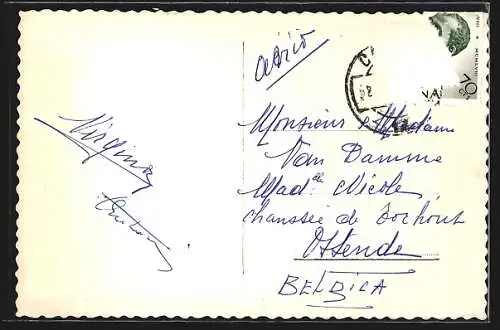 aéreo
Virginia
Monsieur et Madame
Van Damme
Mad.elle Nicole
chaussée de Torhout
Ostende
BELGICA
70